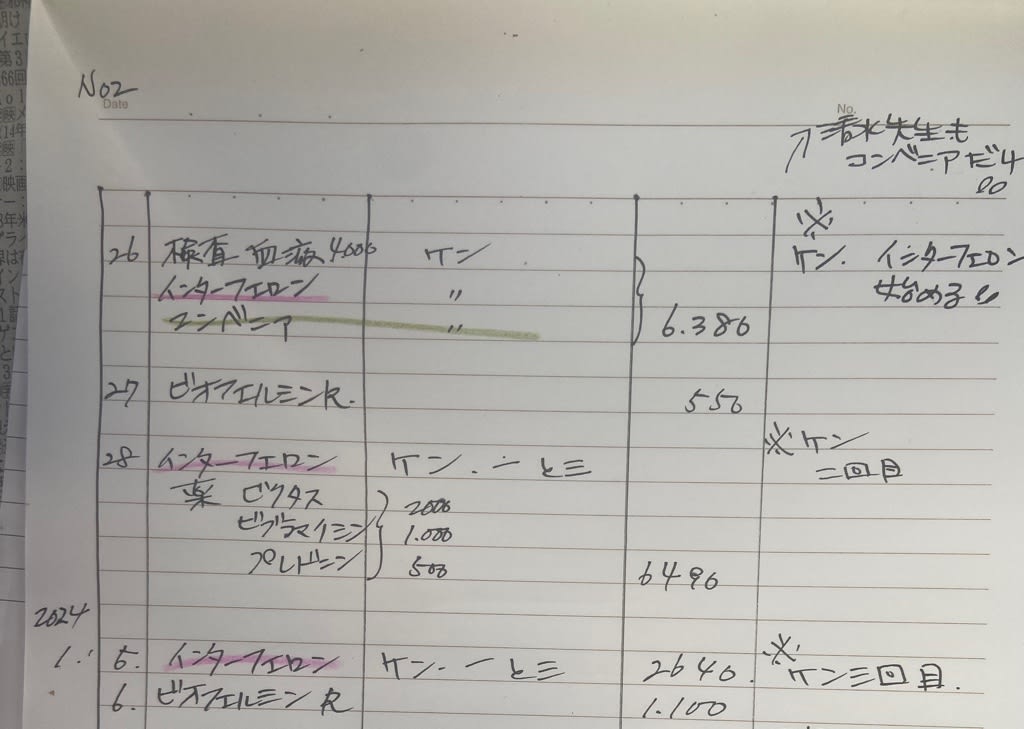 No2
Date
No.
清水先生も
コンベニアだ
26 検査 血液 4000 ケン
※
ケン. インターフェロン
始める
インターフェロン 〃
コンベニア 〃 6.380
27 ビオフェルミンR. 550
28 インターフェロン ケン. 一と三
※ ケン
二回目
薬 ビクタス 2000
ビブラマイシン 1.000
プレドニン 500
6490
2024
1. 5. インターフェロン ケン. 一と三 2640.
※
ケン三回目.
6. ビオフェルミンR 1.100